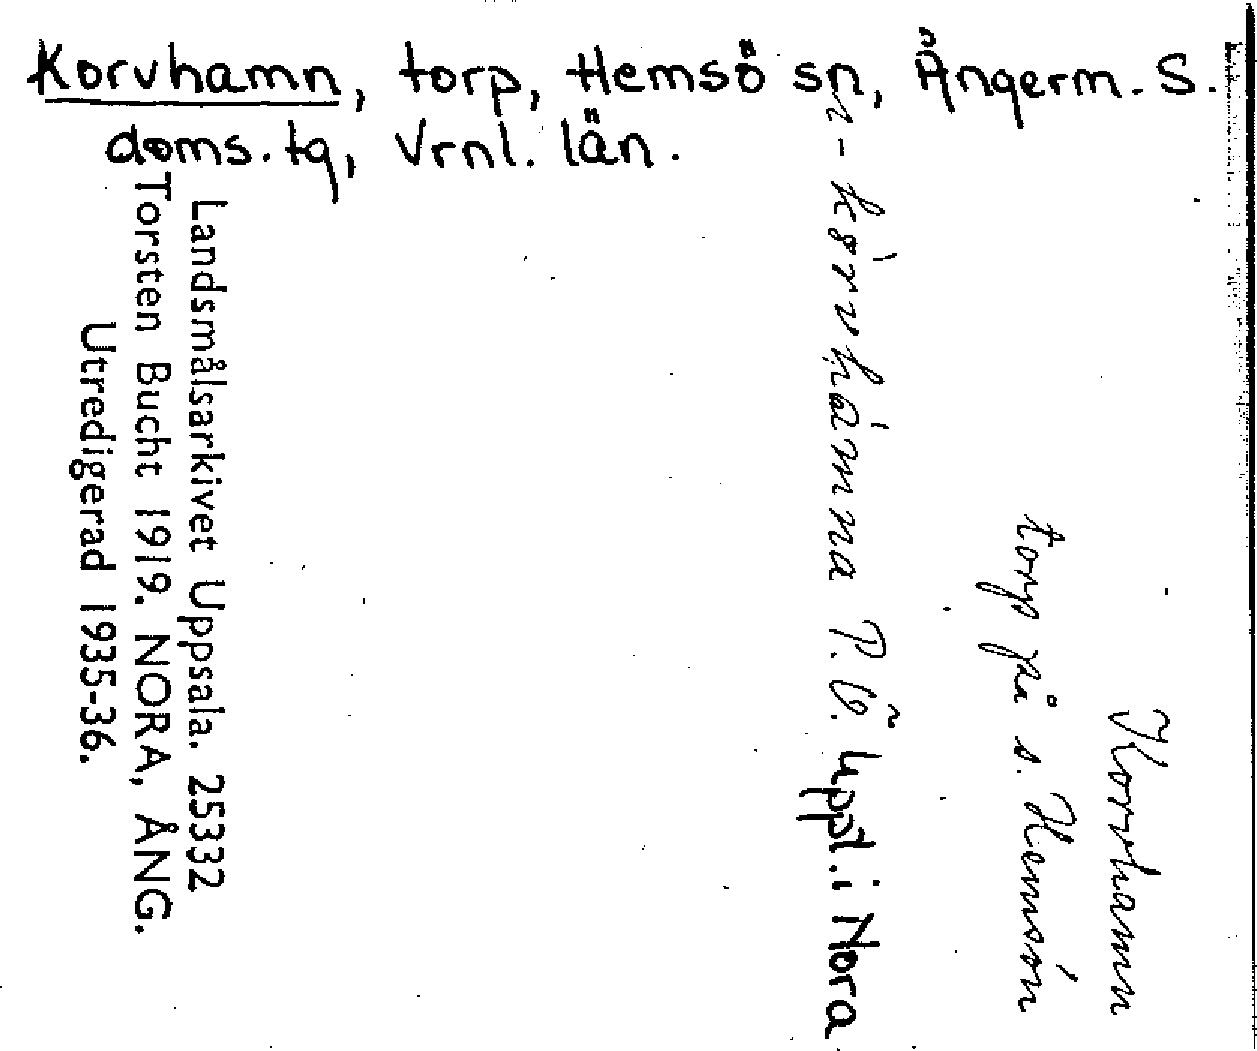 Korvhamn, torp, Hemsö sn, Ångerm. S.
doms. tg, Vrnl. län.
Korvhamn
torp på s. Hemsön
P.Ö. Uppt. i Nora
Landsmålsarkivet Uppsala. 25332
Torsten Bucht 1919. NORA, ÅNG.
Utredigerad 1935-36.